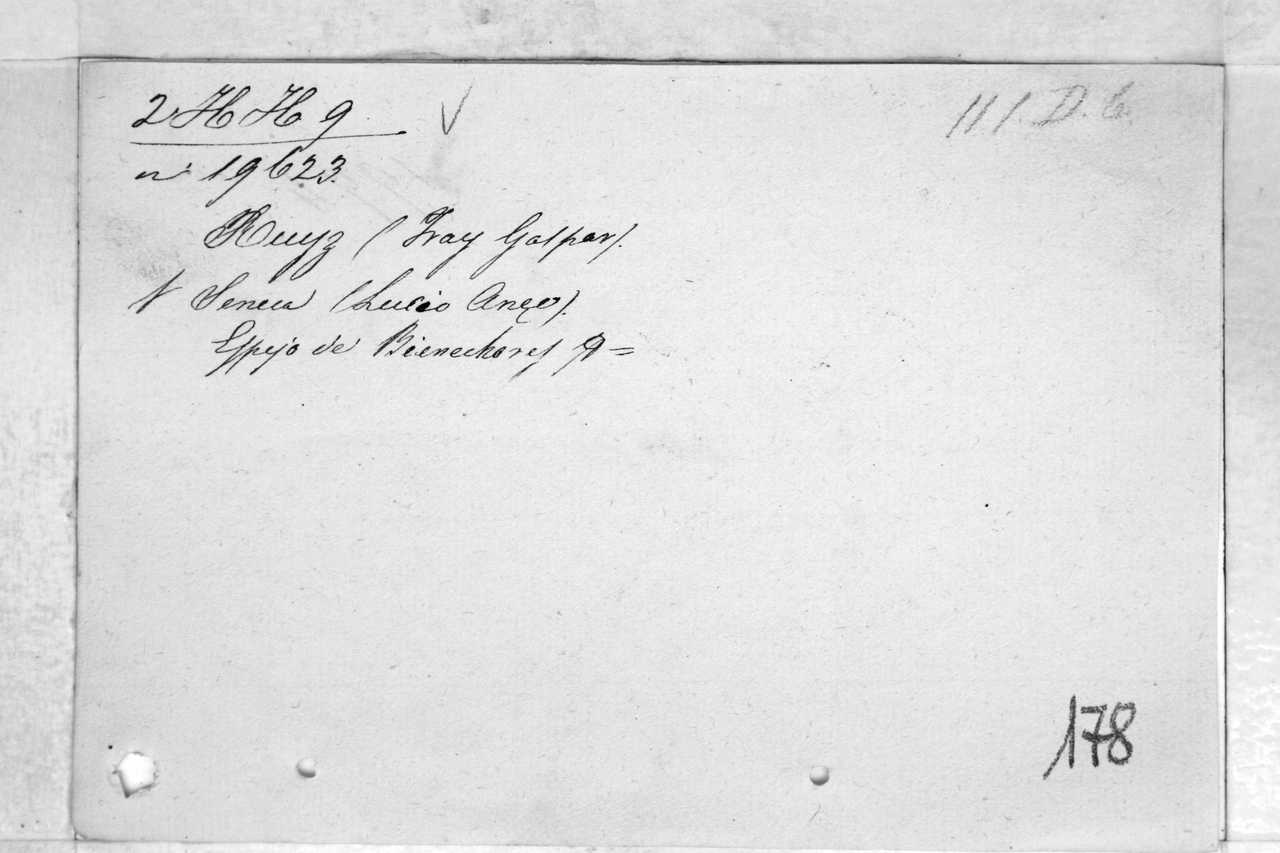 2 H H 9 V
III. D. 6.
nº 19623.
Ruyz (Fray Gaspar).
V Seneca (Lucio Aneo).
Espejo de Bienechores
178